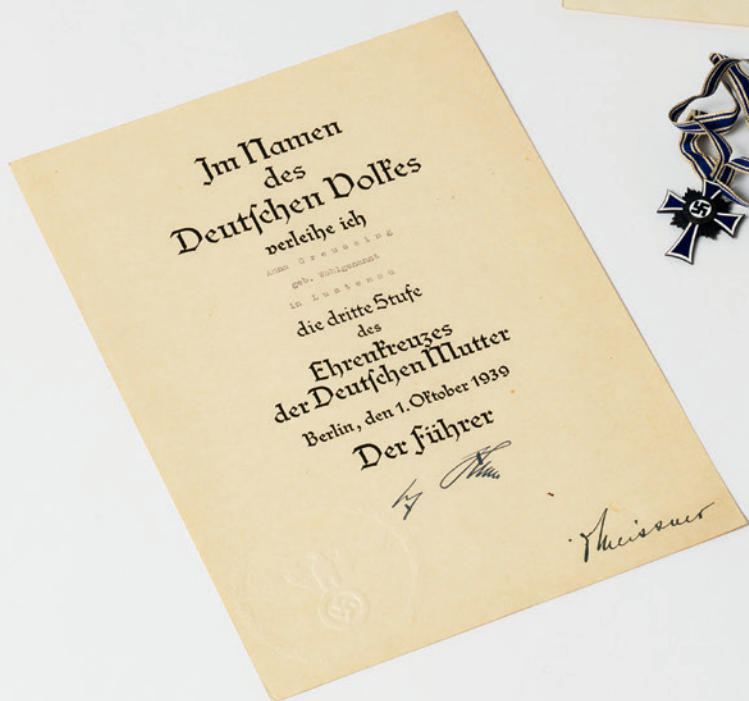 Im Namen
des
Deutschen Volkes
verleihe ich
Anna Greussing
geb. Wohlgenannt
in Lustenau
die dritte Stufe
des
Ehrenkreuzes
der Deutschen Mutter
Berlin, den 1. Oktober 1939
Der Führer
Meissner